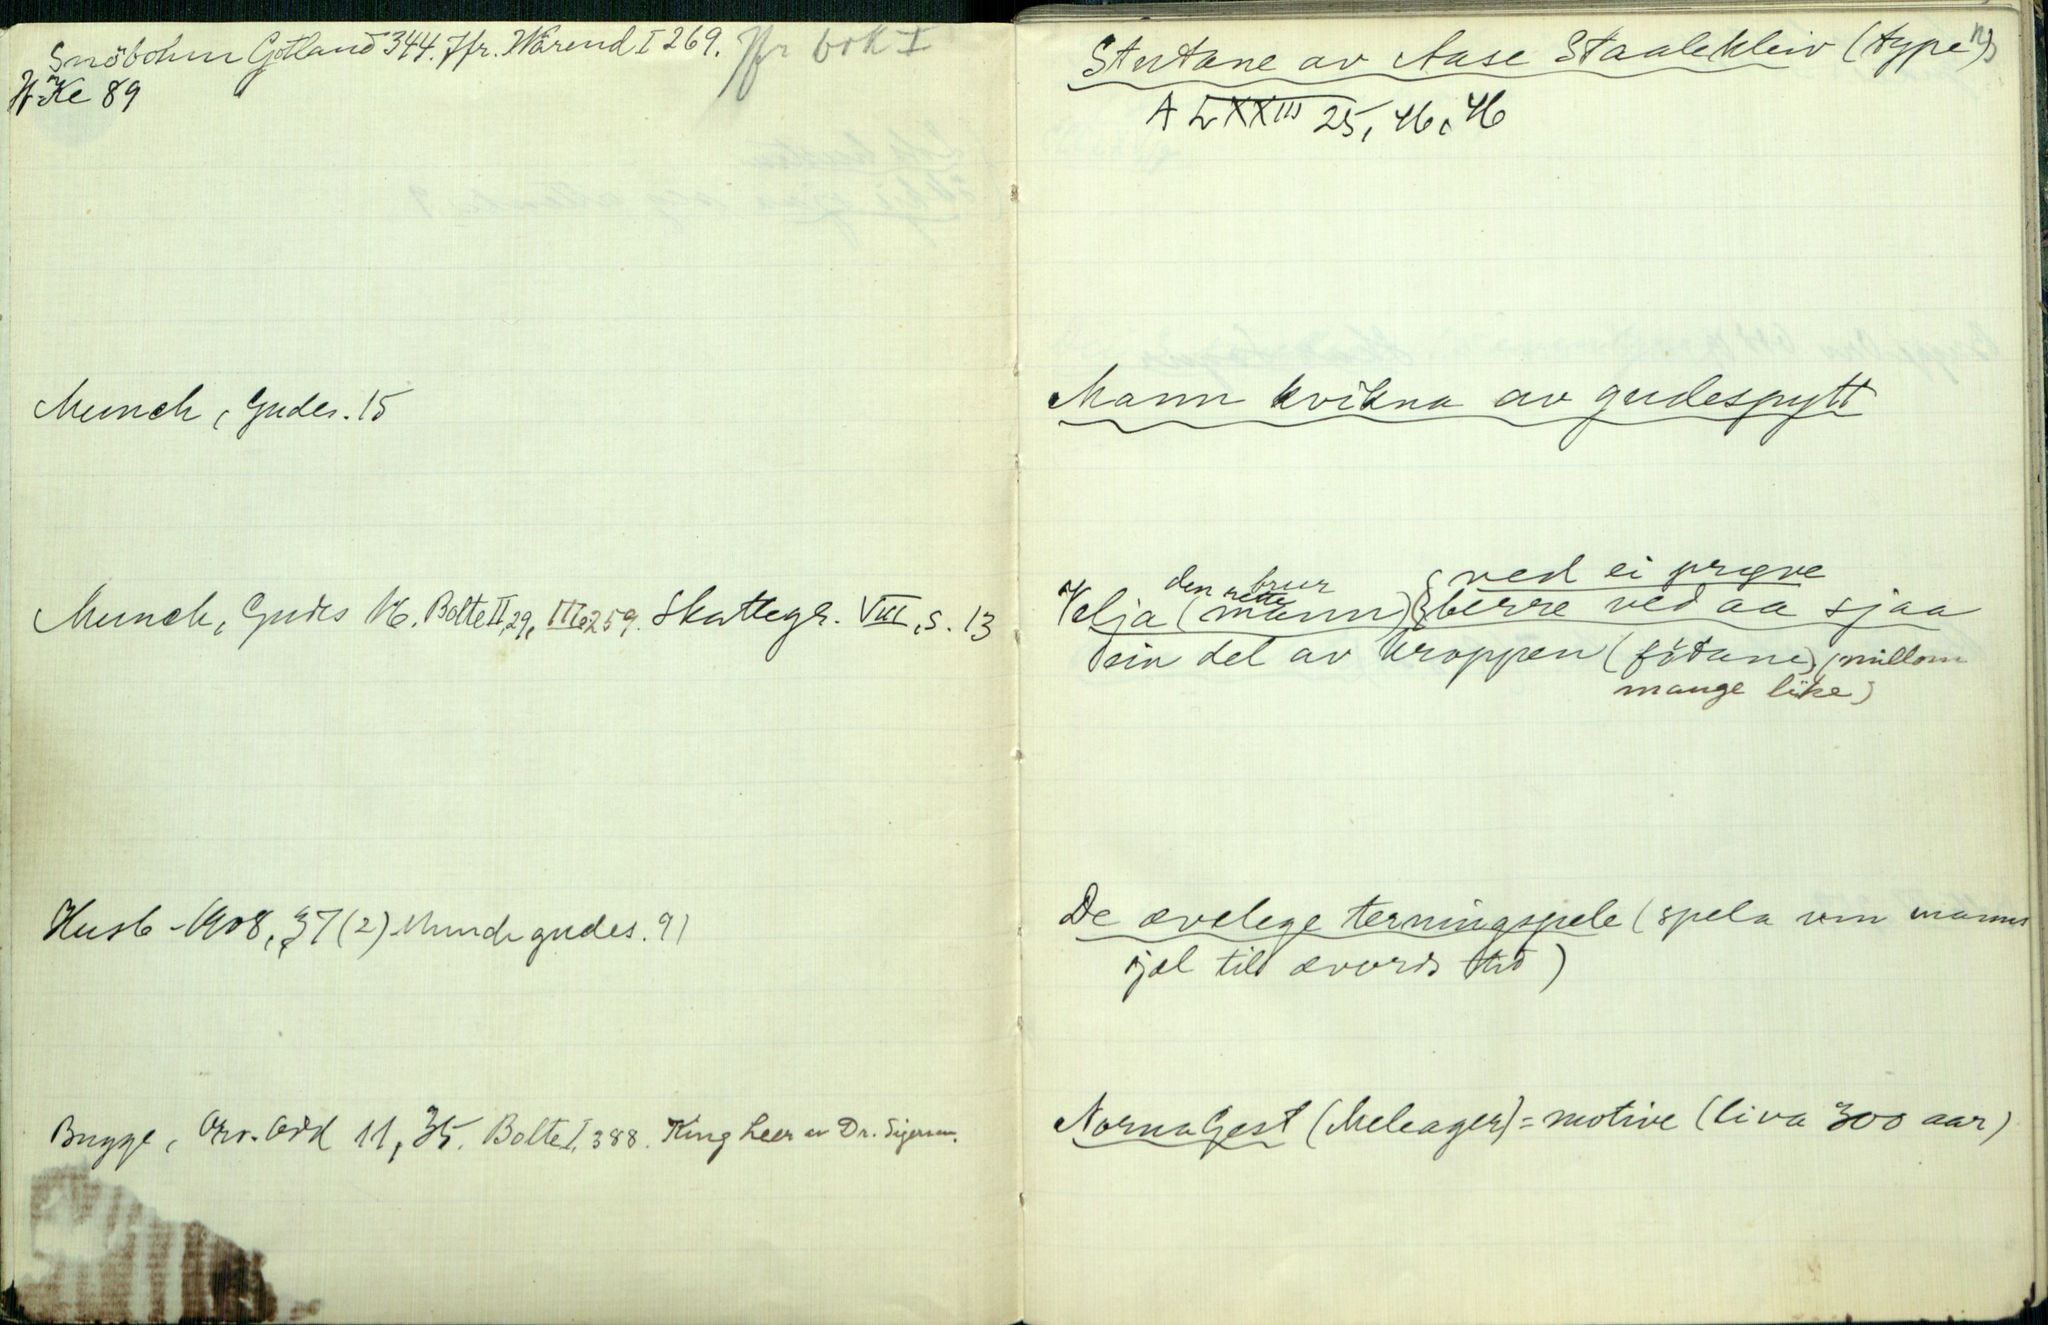 Snöbohm Gotland 344. Jfr. Wärend I 269. Jfr bok I
Ke 89
Munch, Gudes. 15
Munch, Gudes 16. Bolte II, 29, III 259. Skattegr. VIII, s. 13
Husb - 1908, 37 (2) Munch gudes. 91
Bugge, Orv. Odd 11, 35. Bolte I, 388. King Leer av Dr. Sigerson.
Stutane av Aase Staalekleiv (type)
A LXXIII 25, 46, 46
Mann kvikna av gudespytt
den rette brur ved ei prøve
Velja (mann) berre ved aa sjaa
ein del av kroppen (fötane) (millom
mange like)
De ævelege terningspele (spela um manns
sjæl til ævords tid)
NornaGest (Meleager) = motive (liva 300 aar)